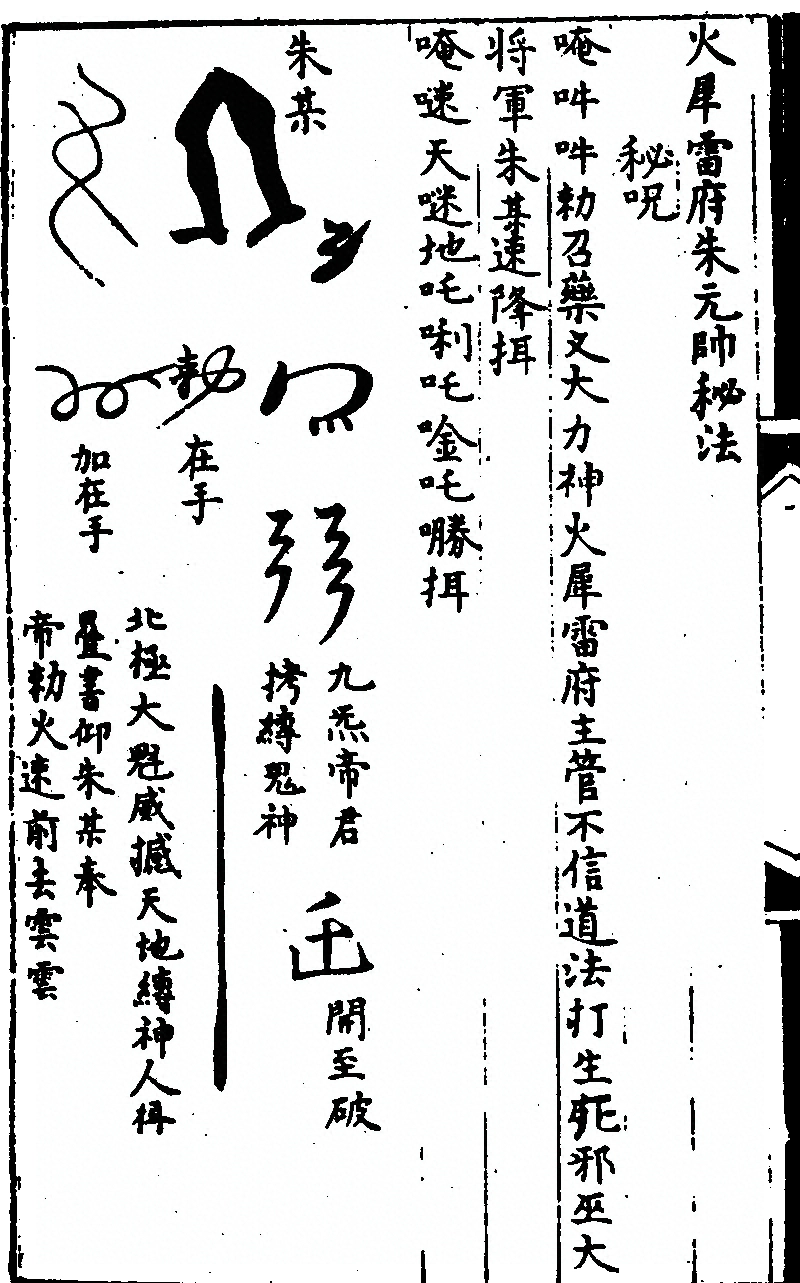 火犀雷府朱元帥秘法
秘呪
唵吽吽勑召藥叉大力神火犀雷府主管不信道法打生死邪巫大
將軍朱某速降挕
唵㘑天㘑地吒唎吒唫吒㘑挕
朱某
九炁帝君
拷縛鬼神
開至破
勑
在手
加在手
北極大魁威撼天地縛神人
疊書仰朱某奉
帝勑火速前去雲雲